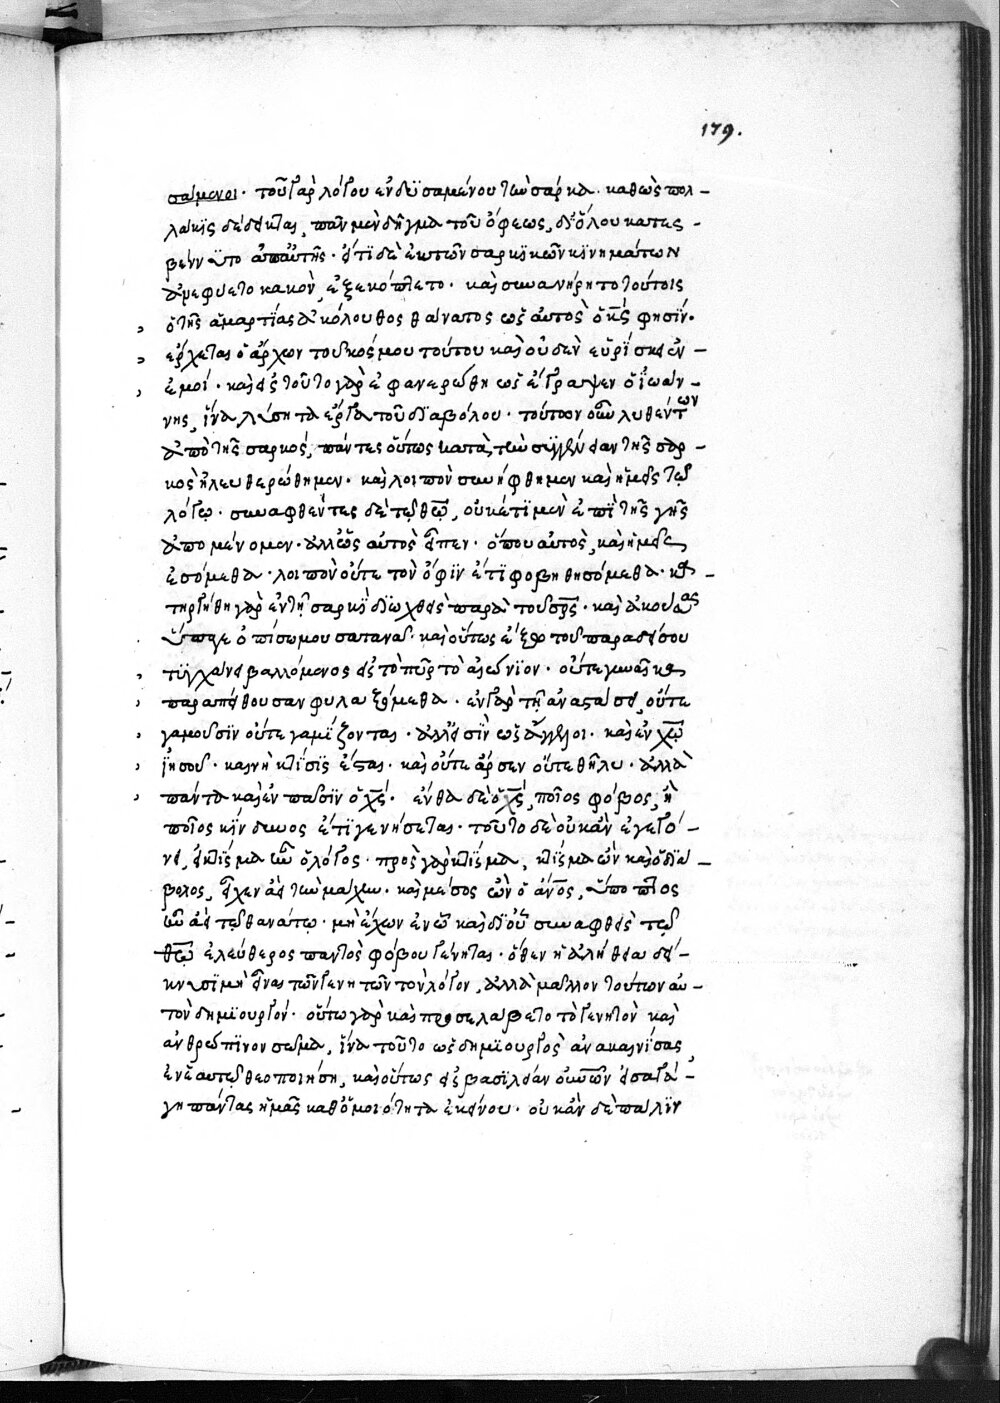 179.
σάμενοι· τοῦ γὰρ λόγου ἐνδϋσαμένου τὴν σάρκα· καθὼς πολ–
λάκϊς δέδεικται, πᾶν μὲν δῆγμα τοῦ ὄφεως, δϊόλου κατεσ–
βέννυτο ἀπ' αὐτῆς· εἴτϊ δὲ ἐκ τῶν σαρκϊκῶν κϊνημάτων
ἀνεφύετο κακὸν, ἐξεκόπτετο· καὶ συνανήρητο τούτοις
ὁ τῆς ἁμαρτίας ἀκόλουθος θάνατος ὡς αὐτὸς ὁ κ̅ς̅ φησίν·
ἔρχεται ὁ ἄρχων τοῦ κόσμου τούτου καὶ οὐδὲν εὑρΐσκει ἐν–
ἐμοί· καὶ εἰς τοῦτο γὰρ ἐφανερώθη ὡς ἔγραψεν ὁ ἰωάν–
νης, ἵνα λύση τὰ ἔργα τοῦ δϊαβόλου· τούτων οὖν λυθέντων
ἀπὸ τῆς σαρκός, πάντες οὕτως κατὰ τὴν σϋγγένειαν τῆς σαρ–
κὸς ἠλευθερώθημεν· καὶ λοιπὸν συνήφθημεν καὶ ἡμεῖς τῷ
λόγῳ· συναφθέντες δὲ τῷ θ̅ῷ̅, οὐκ ἔτϊ μὲν ἐπῒ τῆς γῆς
ἀπομένομεν· ἀλλ' ὡς αὐτὸς εἶπεν· ὅπου αὐτὸς, καὶ ἡμεῖς
ἐσόμεθα· λοιπὸν οὔτε τὸν ὄφϊν ἔτϊ φοβηθησόμεθα· κα–
τηργήθη γὰρ ἐν τῇ σαρκῒ δϊωχθεὶς παρὰ τοῦ σ̅ρ̅ς̅· καὶ ἀκούσας
ὕπαγε ὀπίσω μου σατανᾶ· καὶ οὕτως ἔξω τοῦ παραδείσου
τϋγχάνει βαλλόμενος εἰς τὸ πῦρ τὸ αἰώνϊον· οὔτε γυναῖκα
παραπείθουσαν φυλαξόμεθα· ἐν γὰρ τῇ ἀναστάσει, οὔτε
γαμοῦσϊν οὔτε γαμΐζονται· ἀλλ' εἰσῒν ὡς ἄγγελοι· καὶ ἐν χ̅ῷ̅
ἰησοῦ· καινὴ κτΐσϊς ἔσται· καὶ οὔτε ἄρσεν οὔτε θῆλυ· ἀλλὰ
πάντα καὶ ἐν πᾶσϊν ὁ χ̅ς̅· ἔνθα δὲ ὁ χ̅ς̅, ποῖος φόβος, ἢ
ποῖος κΐνδυνος ἔτϊ γενήσεται· τοῦτο δὲ οὐκ ἂν ἐγεγό–
νει, εἰ κτΐσμα ἦν ὁ λόγος· πρὸς γὰρ κτΐσμα, κτΐσμα ὢν καὶ ὁ δϊά–
βολος, εἶχεν ἀεὶ τὴν μάχην· καὶ μέσος ὢν ὁ ἄ̅ν̅ο̅ς̅, ὕποπτος
ἦν ἀεὶ τῷ θανάτῳ· μὴ ἔχων ἐν ᾧ καὶ δϊ' οὗ συναφθεὶς τῷ
θ̅ῷ̅ ἐλεύθερος παντὸς φόβου γένηται· ὅθεν ἡ ἀλήθεια δεί–
κνυσϊ μὴ εἶναι τῶν γενητῶν τὸν λόγον, ἀλλὰ μᾶλλον τούτων αὐ–
τὸν δημϊουργόν· οὕτω γὰρ καὶ προσελάβετο τὸ γενητὸν καὶ
ἀνθρώπινον σῶμα, ἵνα τοῦτο ὡς δημϊουργὸς ἀνακαινΐσας,
ἐν ἑαυτῷ θεοποιήση, καὶ οὕτως εἰς βασϊλείαν οὐ̅ν̅ῶν εἰσαγά–
γη πάντας ἡμᾶς καθ' ὁμοιότητα ἐκείνου· οὐκ ἂν δὲ πάλϊν